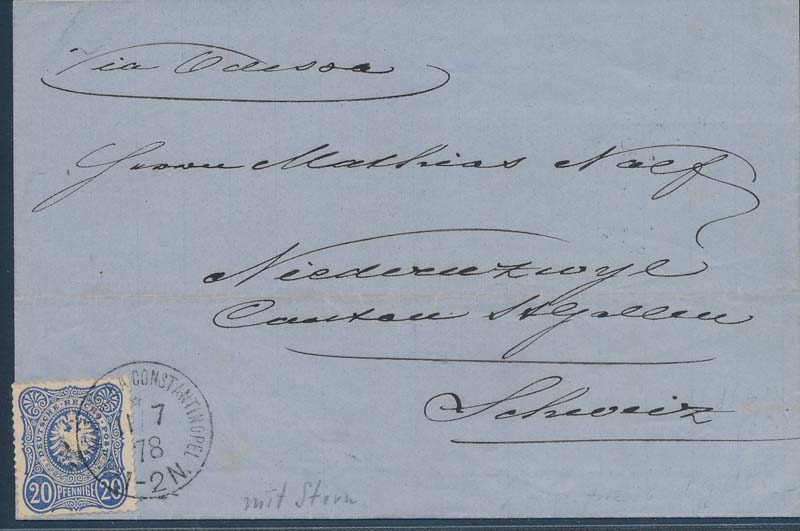 Via Odessa
Herrn Mathias Naef
Niederuzwyl
Canton St Gallen
Schweiz
CONSTANTINOPEL
7
78
-2N.
DEUTSCHE REICHS-POST
20 PFENNIGE 20
mit Stern